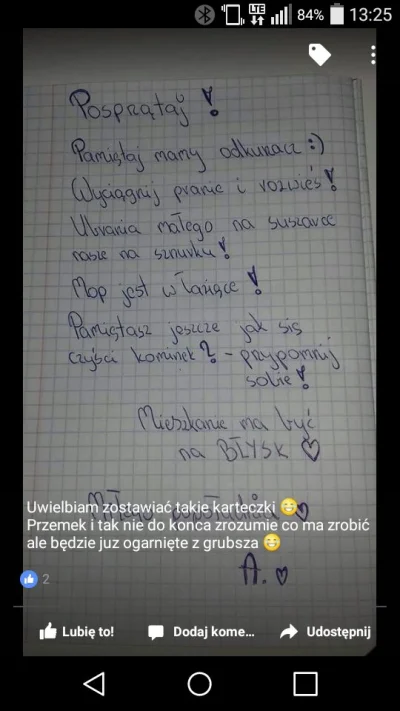 84% 13:25
Posprzątaj !
Pamiętaj mamy odkurzacz :)
Wyciągnij pranie i rozwieś !
Ubrania małego na suszarce
nasze na sznurku !
Mop jest w łazience !
Pamiętasz jeszcze jak się
czyści kominek ? - przypomnij
sobie !
Mieszkanie ma być
na BŁYSK ♡
Miłego popołudnia ♡
Uwielbiam zostawiać takie karteczki 😁
Przemek i tak nie do konca zrozumie co ma zrobić
ale będzie juz ogarnięte z grubsza 😁
A. ♡
2
Lubię to! Dodaj kome... Udostępnij